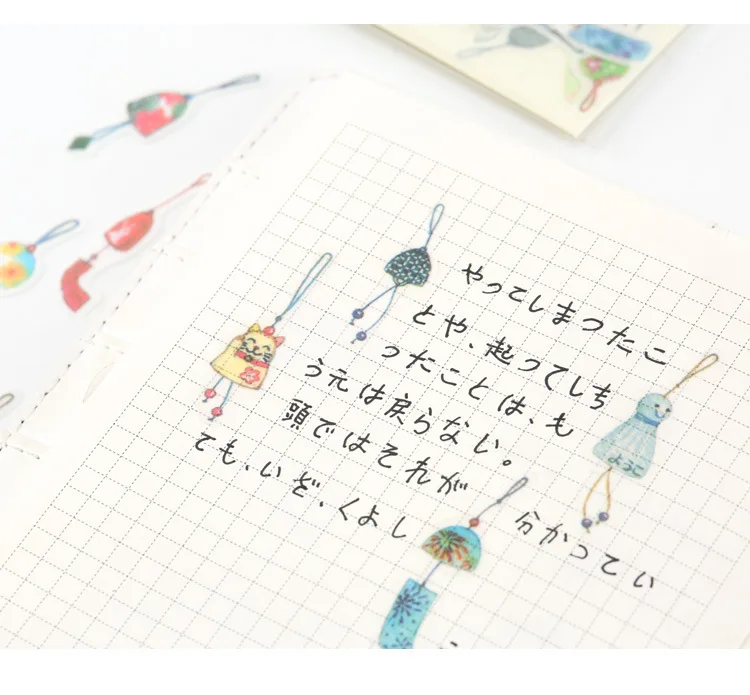 やってしまつたこ
とや、起ってしち
つたことは、も
う元は戻らない。
頭ではそれが
分かってい
ても、いざ、くよし
ようこ